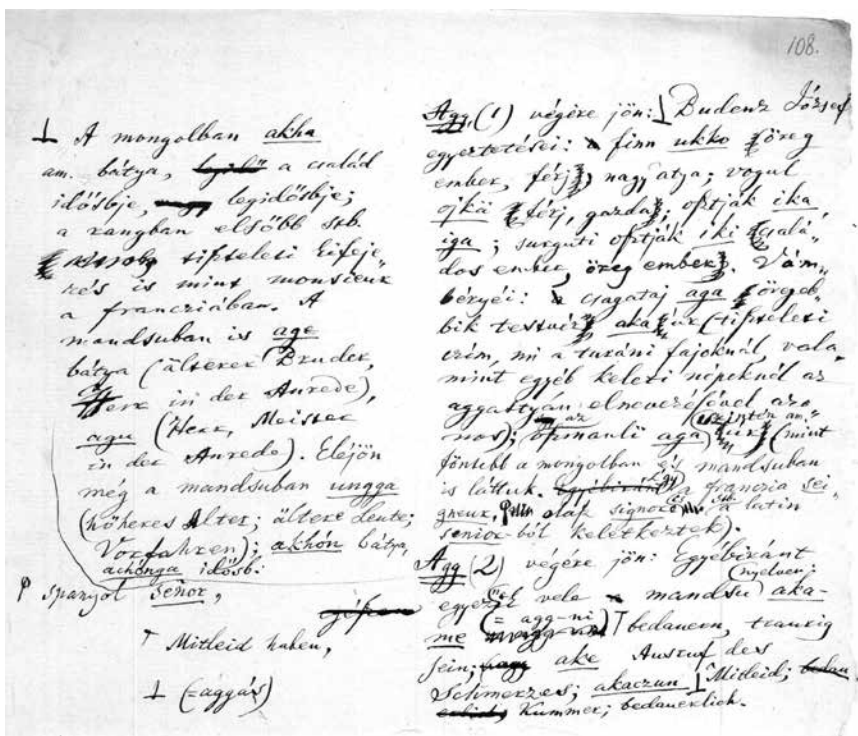 108.
⊥ A mongolban akha
am. bátya, a család
idősbje, legidősbje;
a rangban elsőbb stb.
tiszteleti kifeje-
zés is mint monsieur
a francziában. A
mandsuban is age
bátya (älterer Bruder,
Herr in der Anrede),
agu (Herr, Meister
in der Anrede). Eléjön
még a mandsuban ungga
(höheres Alter; ältere Leute;
Vorfahren); akhón bátya,
achônga idősb.
spanyol señor,
Mitleid haben,
⊥ (=aggás)
Agg, (1) végére jön: ⊥ Budenz József
egyeztetései: finn ukko öreg
ember, férj, nagyatya; vogul
ojkä férj, gazda; osztják ika
iga; surguti osztják iki csalá-
dos ember, öreg ember. Vám-
béryéi: csagataj aga öregeb-
bik testvér, aka úr (tiszteleti
czím, mi a turáni fajoknál, vala-
mint egyéb keleti népeknél az
aggastyán elnevezésével azo-
nos); az oszmanli aga (szintén am. úr) (mint
föntebb a mongolban és mandsuban
is láttuk. Így a franczia sei-
gneur, olasz signore stb. a latin
senior-ból keletkeztek).
Agg (2) végére jön: Egyébiránt
egyezik vele mandsu nyelven: aka-
me (= agg-ni) bedauern, traurig
sein; ake Ausruf des
Schmerzes; akaczun ⊥ Mitleid;
Kummer; bedauerlich.